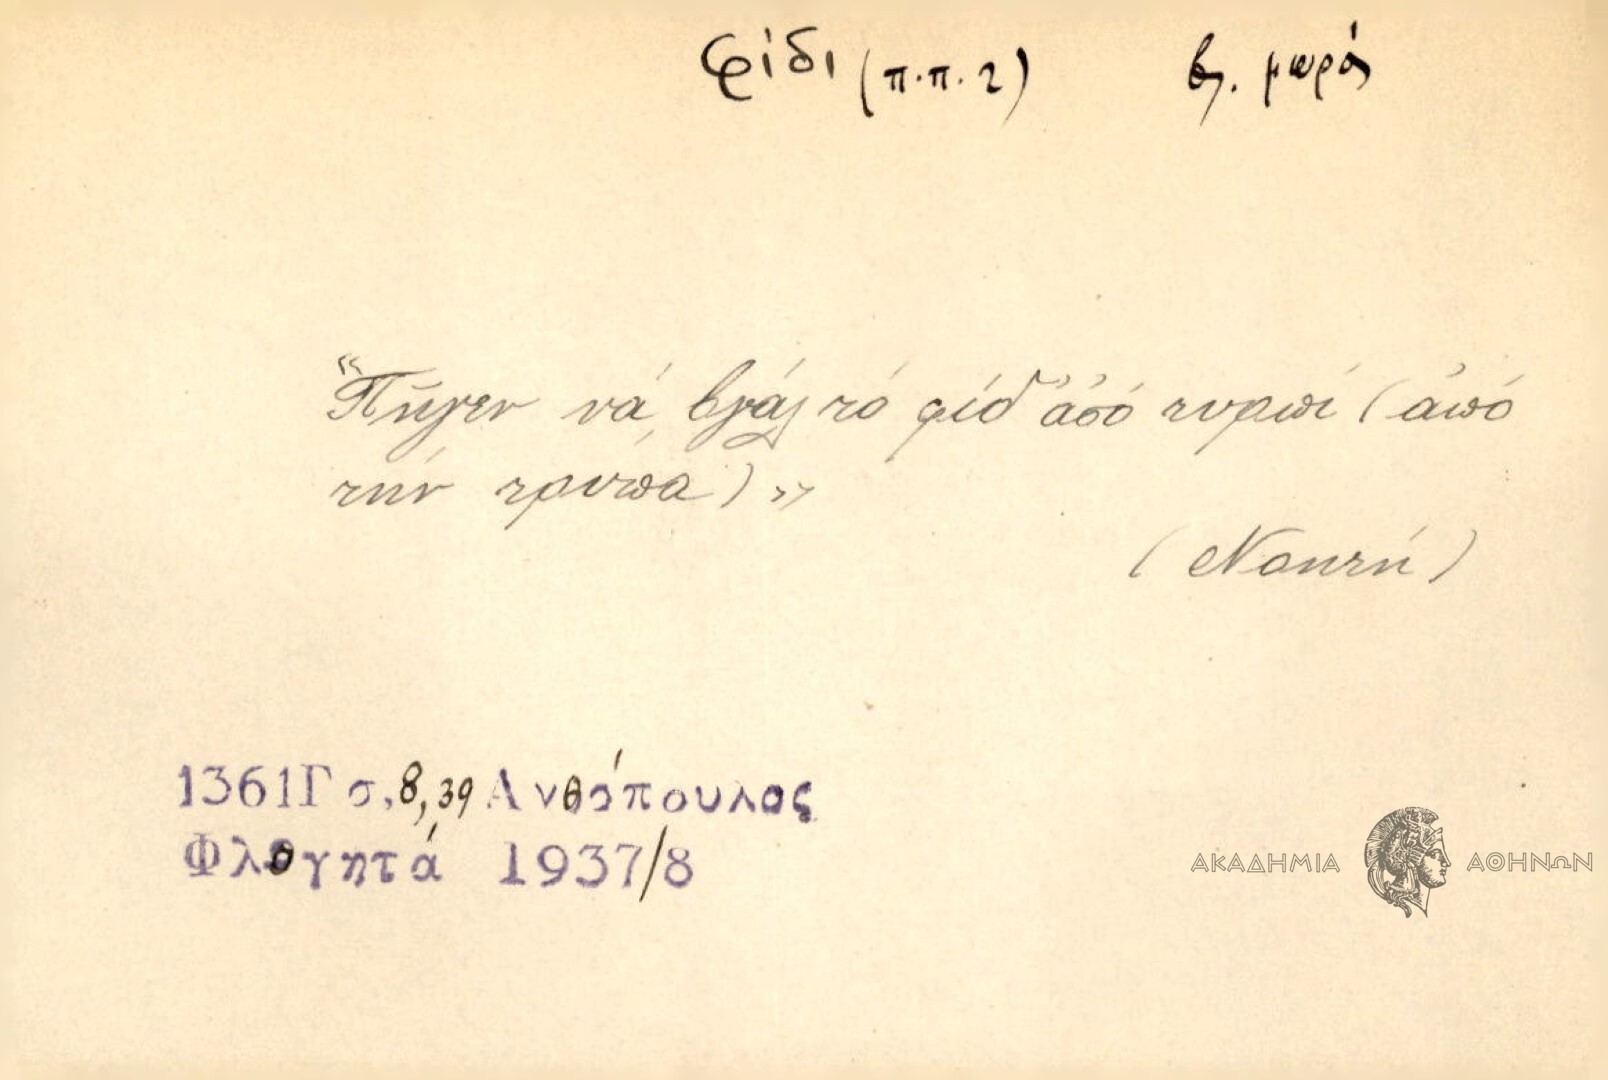 φίδι (π.π. 2) βλ. μωρός
"Πῆγεν νά βγάλ τό φίδ' ἀσό τυρπί (ἀπό
τήν τρυπα)"
1361Γ σ. 8, 39 Ανθόπουλος
Φλογητά 1937/8
ΑΚΑΔΗΜΙΑ ΑΘΗΝΩΝ